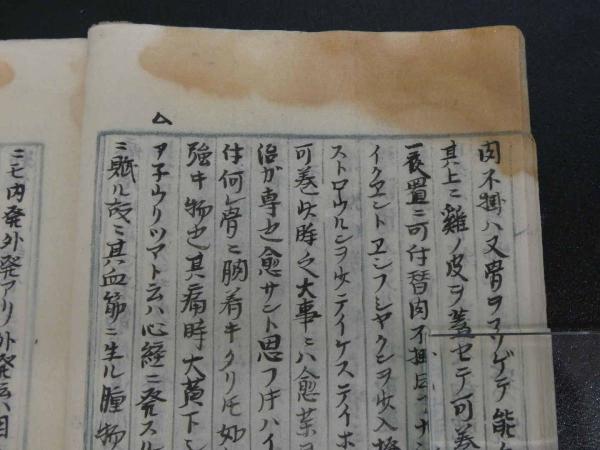 肉不掛ハ又骨ヲコソゲテ能
其上ニ雞ノ皮ヲ蓋セテ可巻
一夜置ニ可付替肉不掛
イクエントエンフンシヤクシヲ少入
ストロウルシヲ少シテイケステイホ
可巻此時之大事ニハ愈薬ヨ
治ガ専也愈サント思フ片ハイ
付何レ骨ニ胸着キタリ氏如
強キ物也其痛時大黄下シ
ム
アネウリツマト云ハ心経ニ発スル
ニ賦ル故ニ其血筋ニ生ル腫物
ニモ内発外発アリ外発云ハ目